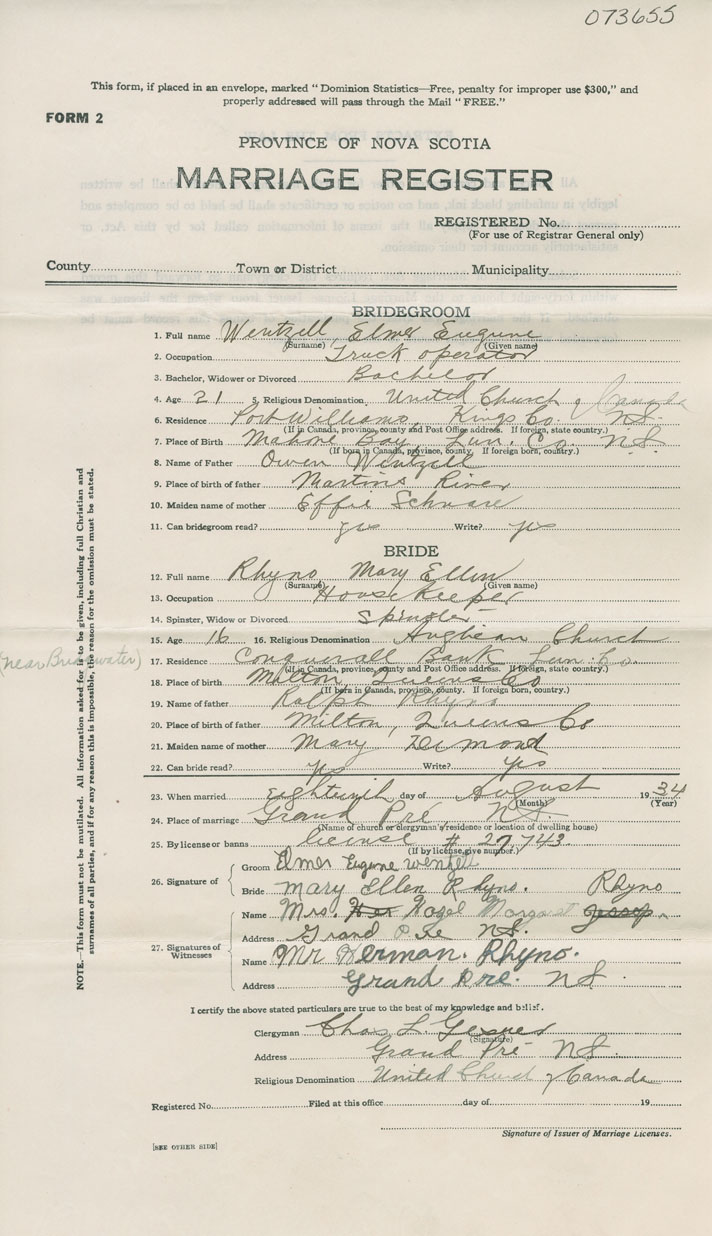 073655
This form, if placed in an envelope, marked "Dominion Statistics—Free, penalty for improper use $300," and
properly addressed will pass through the Mail "FREE."
FORM 2
PROVINCE OF NOVA SCOTIA
MARRIAGE REGISTER
REGISTERED No.
(For use of Registrar General only)
County Town or District Municipality
BRIDEGROOM
1. Full name Wentzell, Elmer Eugune
(Surname) (Given name)
2. Occupation Truck operator
3. Bachelor, Widower or Divorced Bachelor
4. Age 21 5. Religious Denomination United Church of Canada
6. Residence Port Williams, Kings Co. N.S.
(If in Canada, province, county and Post Office address. If foreign, state country.)
7. Place of Birth Mahone Bay, Lun. Co. N.S.
(If born in Canada, province, county. If foreign born, country.)
8. Name of Father Owen Wentzell
9. Place of birth of father Martins River
10. Maiden name of mother Effie Schnare
11. Can bridegroom read? yes Write? yes
BRIDE
12. Full name Rhyno, Mary Ellen
(Surname) (Given name)
13. Occupation House Keeper
14. Spinster, Widow or Divorced Spinster
15. Age 16 16. Religious Denomination Anglican Church
(near Bridgewater)
17. Residence Conquerall Bank, Lun. Co.
(If in Canada, province, county and Post Office address. If foreign, state country.)
18. Place of birth Milton, Queens Co
(If born in Canada, province, county. If foreign born, country.)
19. Name of father Ralph Rhyno
20. Place of birth of father Milton, Queens Co
21. Maiden name of mother Mary Demond
22. Can bride read? yes Write? yes
23. When married eighteenth day of August 1934
(Month) (Year)
24. Place of marriage Grand Pré N.S.
(Name of church or clergyman's residence or location of dwelling house)
25. By license or banns license # 27,743.
(If by license, give number.)
26. Signature of
Groom Elmer Eugune Wentzell
Bride Mary Ellen Rhyno. Rhyno
27. Signatures of Witnesses
Name Mrs. Hazel Margaret Jessop
Address Grand Pre N.S.
Name Mr Herman. Rhyno.
Address Grand Pre. N.S.
I certify the above stated particulars are true to the best of my knowledge and belief.
Clergyman Chas. L. Gesner
(Signature)
Address Grand Pré N.S.
Religious Denomination United Church of Canada
Registered No. Filed at this office day of 19
Signature of Issuer of Marriage Licenses.
[SEE OTHER SIDE]
NOTE.—This form must not be mutilated. All information asked for is to be given, including full Christian and
surnames of all parties, and if for any reason this is impossible, the reason for the omission must be stated.